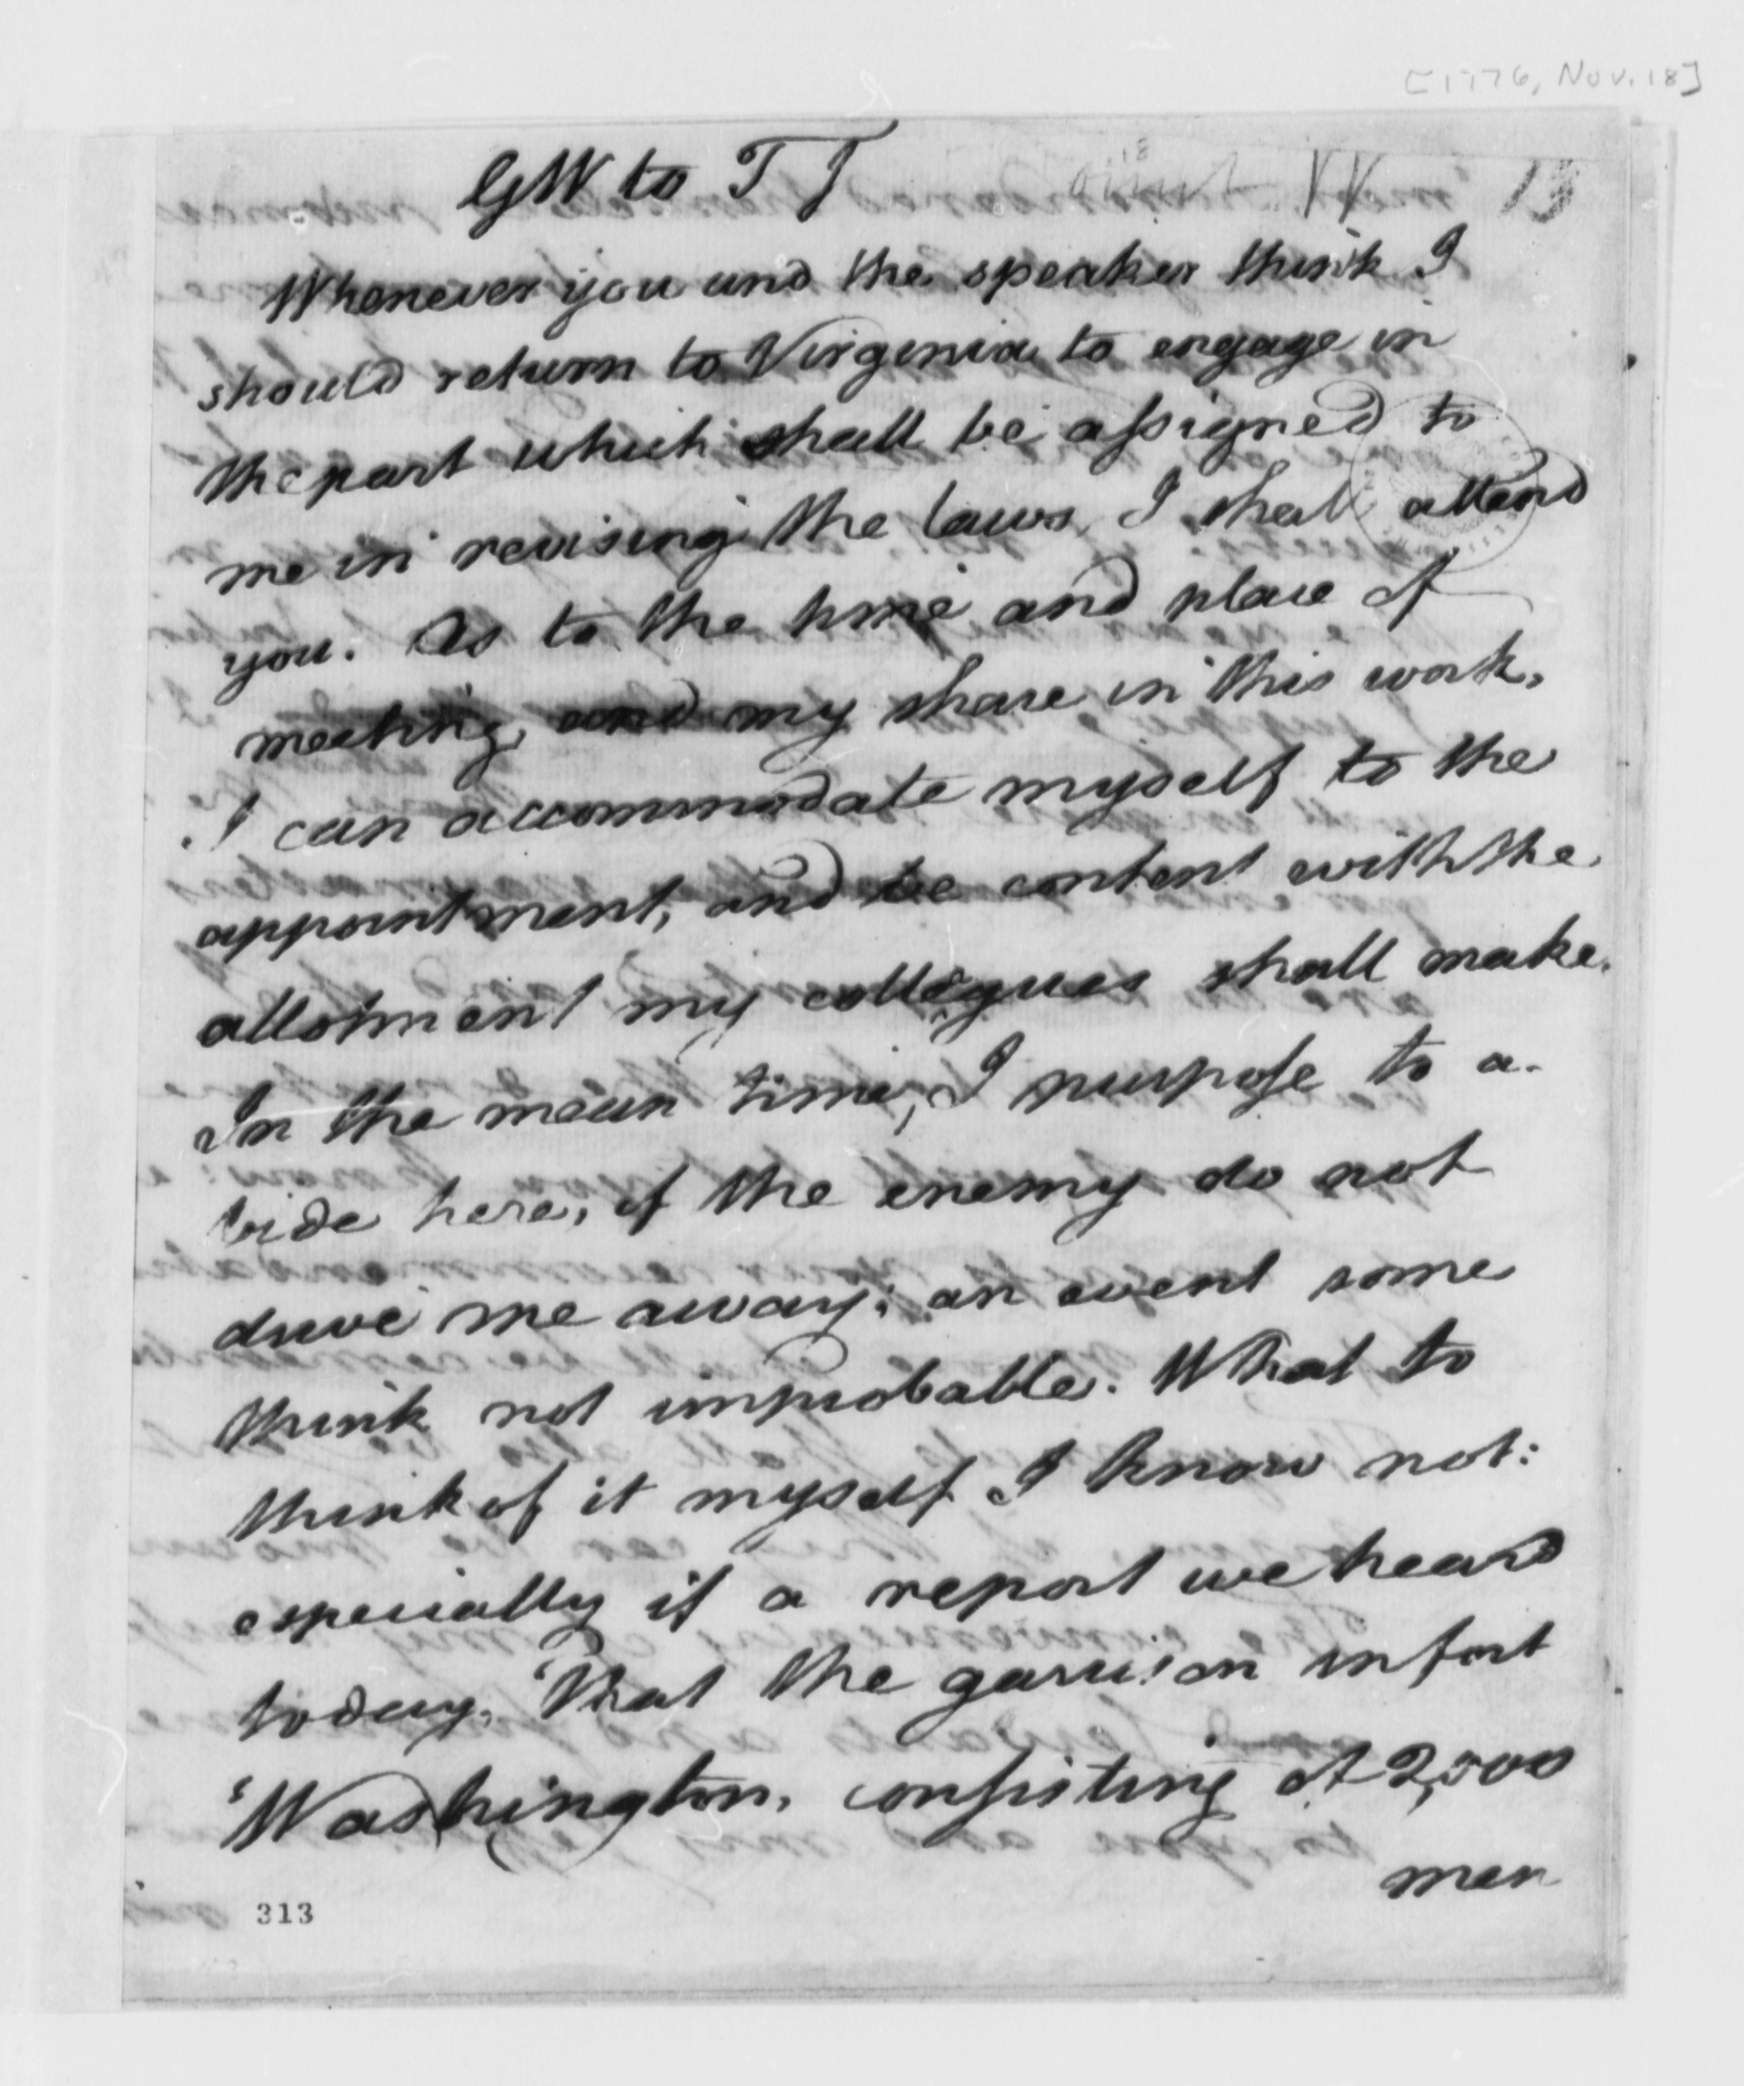 [1776, Nov. 18]
GW to TJ
13
Whenever you and the speaker think I
should return to Virginia to engage in
the part which shall be assigned to
me in revising the laws, I shall attend
you. As to the time and place of
meeting, and my share in this work,
I can accommodate myself to the
appointment, and be content with the
allotment my collegues shall make.
In the mean time, I purpose to a-
bide here, if the enemy do not
drive me away; an event some
think not improbable. What to
think of it myself I know not:
especially if a report we heard
today, 'That the garrison in fort
'Washington, consisting of 2,000
men
313